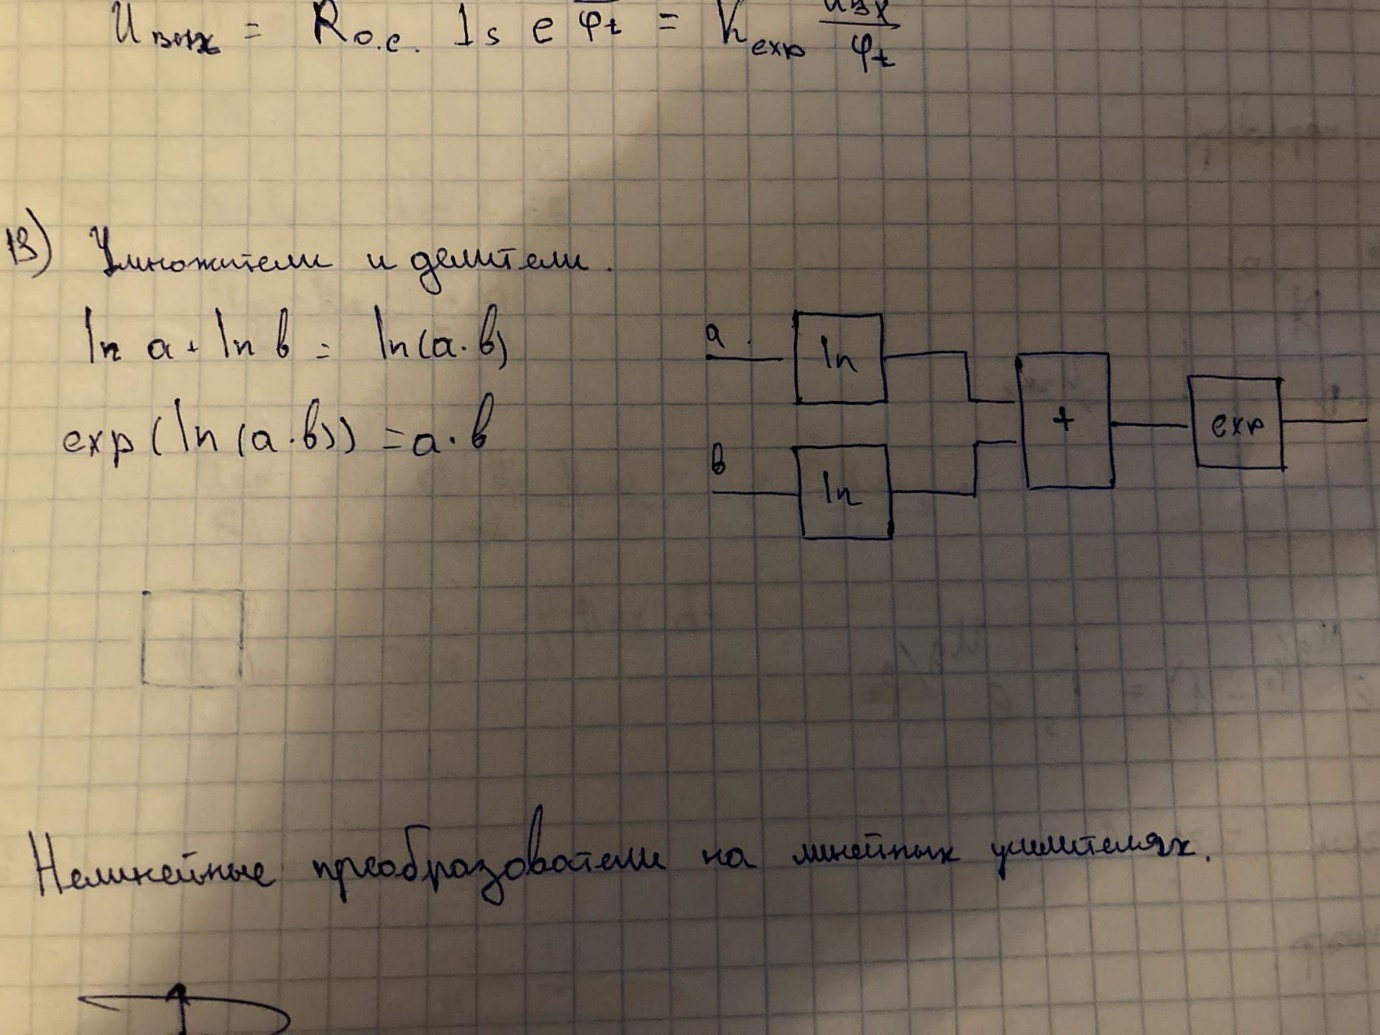 Uвых = Rо.с. Is e φt = Kexp Uвх / φt
13) Умножители и делители.
ln a + ln b = ln(a·b)
exp(ln(a·b)) = a·b
a ln
+ exp
b ln
Нелинейные преобразователи на линейных усилителях.